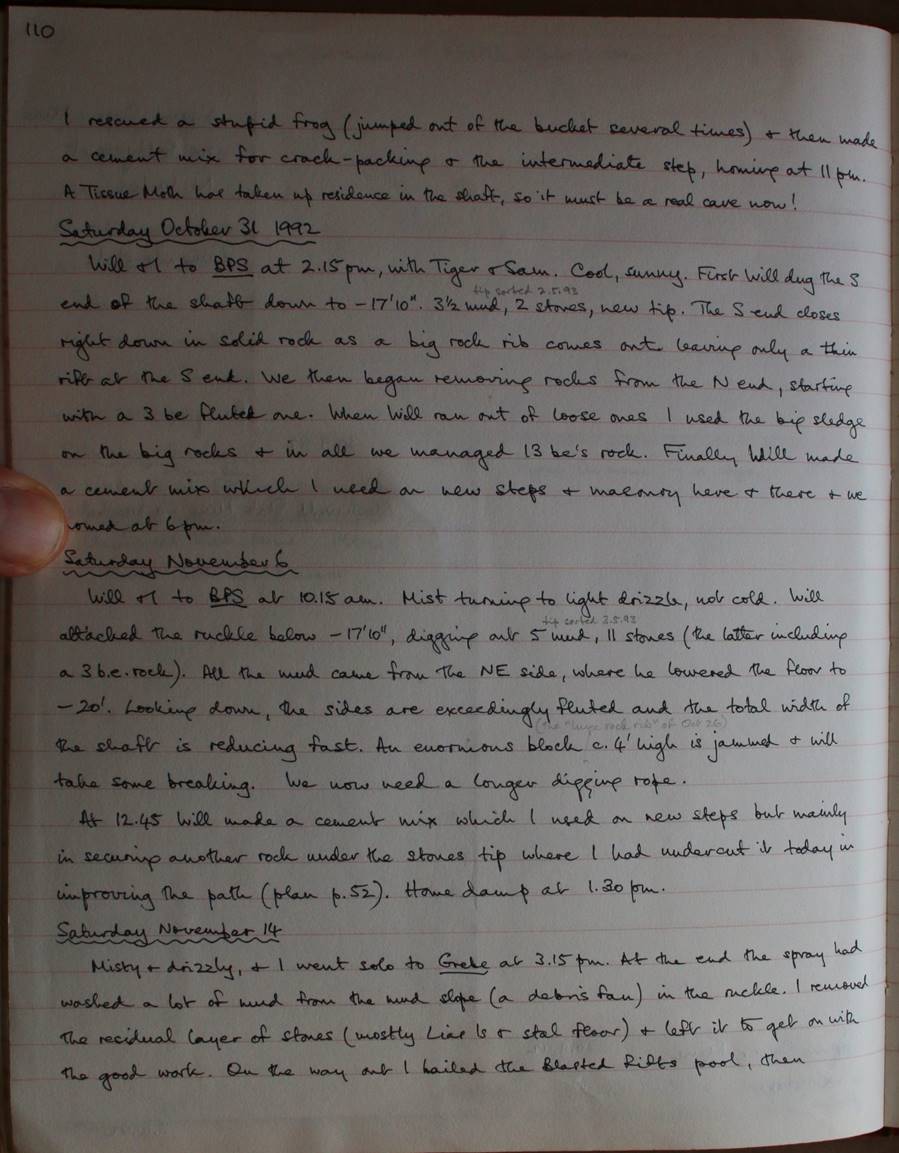 110
I rescued a stupid frog (jumped out of the bucket several times) + then made
a cement mix for crack-packing + the intermediate step, homing at 11 pm.
A Tissue Moth has taken up residence in the shaft, so it must be a real cave now!
Saturday October 31 1992
Will + I to BPS at 2.15 pm, with Tiger + Sam. Cool, sunny. First Will dug the S
tip sorted 2.5.93
end of the shaft down to -17'10". 3½ mud, 2 stones, new tip. The S end closes
right down in solid rock as a big rock rib comes out leaving only a thin
rift at the S end. We then began removing rocks from the N end, starting
with a 3 be fluted one. When Will ran out of loose ones I used the big sledge
on the big rocks + in all we managed 13 be's rock. Finally Will made
a cement mix which I used on new steps + masonry here + there + we
homed at 6 pm.
Saturday November 6
Will + I to BPS at 10.15 am. Mist turning to light drizzle, not cold. Will
tip sorted 3.5.93
attacked the ruckle below -17'10", digging out 5 mud, 11 stones (the latter including
a 3 b.e. rock). All the mud came from the NE side, where he lowered the floor to
-20'. Looking down, the sides are exceedingly fluted and the total width of
(the "huge rock rib" of Oct 26)
the shaft is reducing fast. An enormous block c. 4' high is jammed + will
take some breaking. We now need a longer digging rope.
At 12.45 Will made a cement mix which I used on new steps but mainly
in securing another rock under the stones tip where I had undercut it today in
improving the path (plan p.52). Home damp at 1.30 pm.
Saturday November 14
Misty + drizzly, + I went solo to Grebe at 3.15 pm. At the end the spray had
washed a lot of mud from the mud slope (a debris fan) in the ruckle. I removed
the residual layer of stones (mostly Lias ls + stal floor) + left it to get on with
the good work. On the way out I bailed the Blasted Rifts pool, then